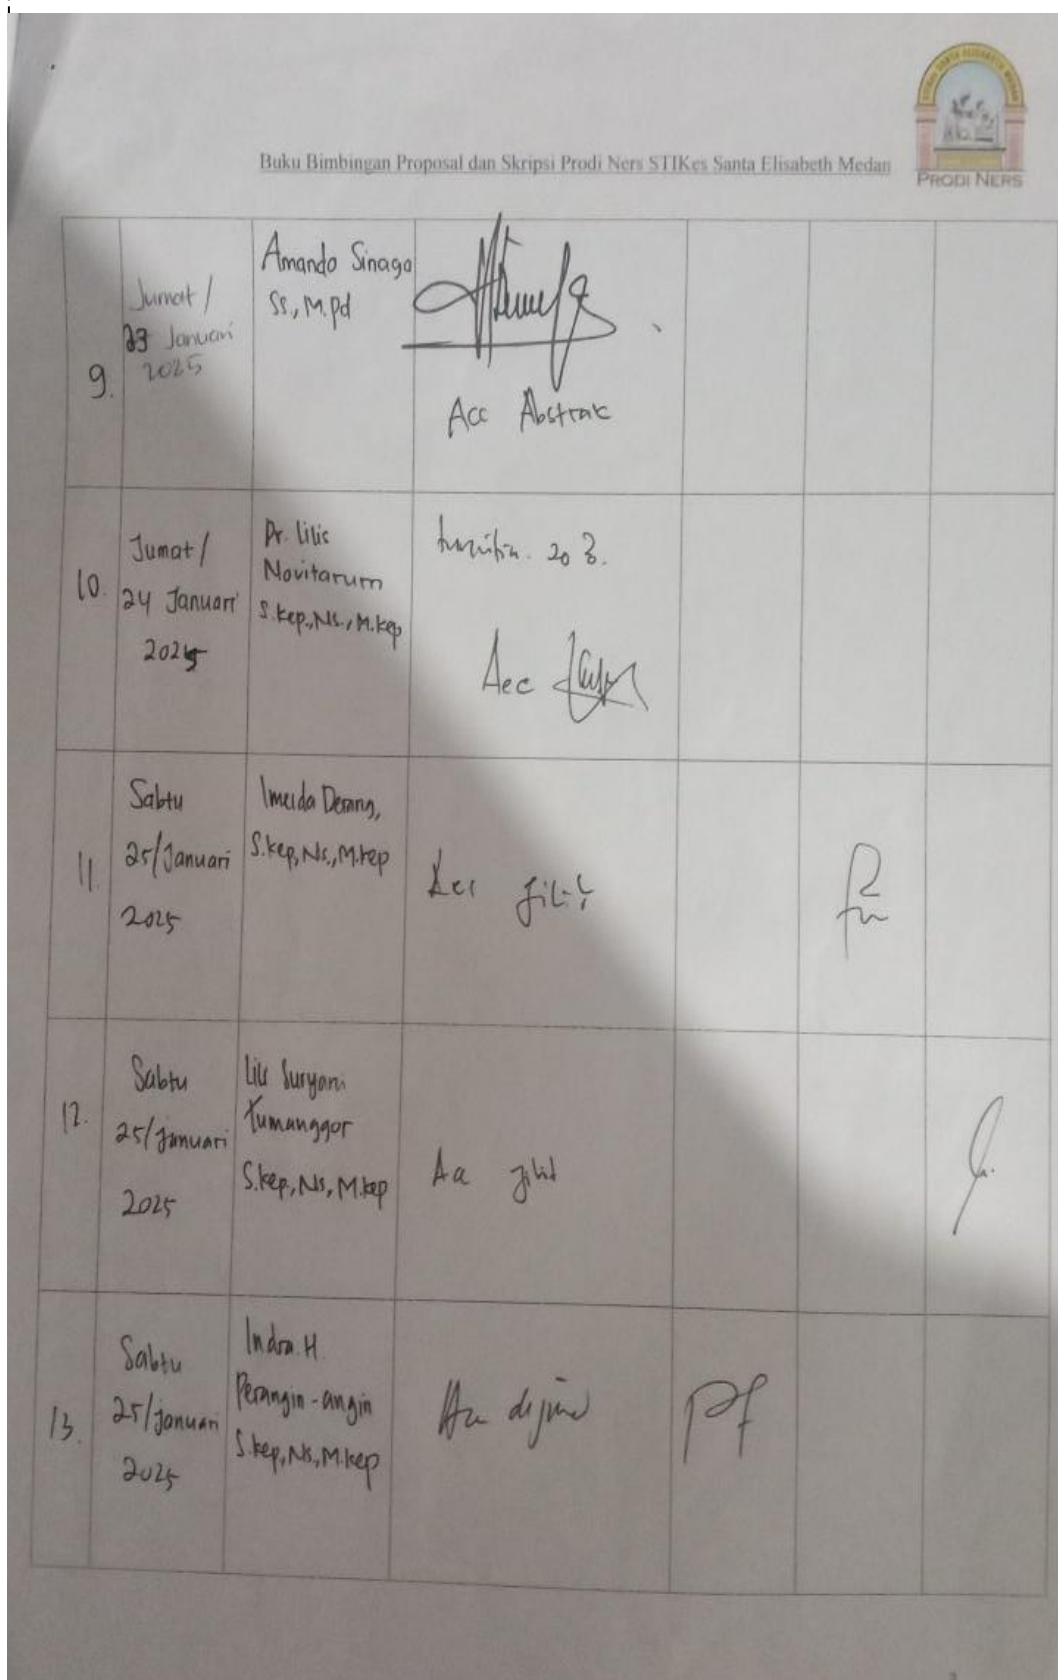 Buku Bimbingan Proposal dan Skripsi Prodi Ners STIKes Santa Elisabeth Medan
PRODI NERS
9.
Jumat /
23 Januari
2025
Amando Sinaga
SS., M.Pd
Acc Abstrak
10.
Jumat /
24 Januari
2025
Dr. Lilis
Novitarum
S.Kep., Ns., M.Kep
Acc
11.
Sabtu
25/Januari
2025
Imelda Derang,
S.Kep, Ns., M.Kep
Acc jilid
12.
Sabtu
25/Januari
2025
Lilis Suryani
Tumanggor
S.Kep, Ns, M.Kep
Acc jilid
13.
Sabtu
25/januari
2025
Indra H.
Perangin-angin
S.Kep, Ns., M.Kep
Acc dijilid